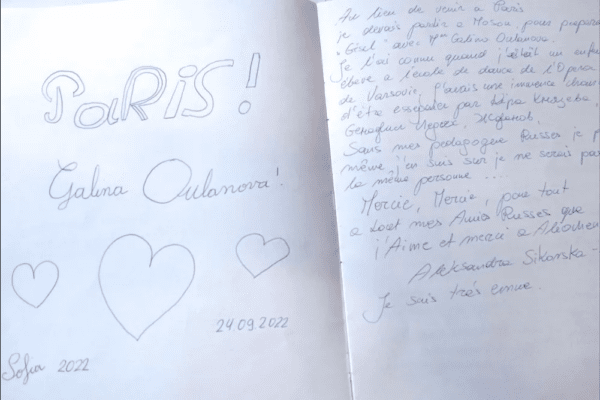 PaRiS!
Galina Oulanova!
24.09.2022
Sofia 2022
Au lieu de venir a Paris
je devais partir a Moscou pour preparer
"Gisel" avec Mme Galina Oulanova.
Je l'ai connu quand j'était un enfan
élève a l'école de danse de l'Opera
de Varsovie, J'avais une immence chan
d'être
par
Sans mes pedagogue Russes je
même j'en suis sur je ne serais pas
la même personne ...
Mercie, Mercie, pour tout
a tout mes Amis Russes que
j'Aime et merci a
Aleksandra Sikorska -
Je suis très emue.